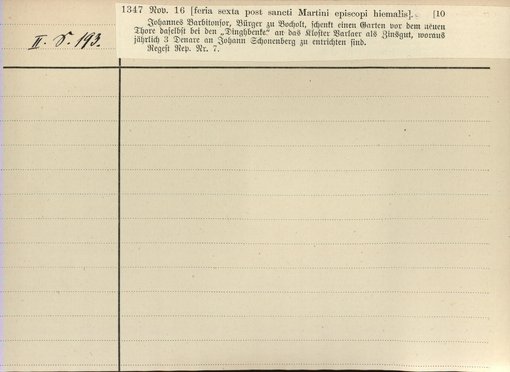 1347 Nov. 16 [feria sexta post sancti Martini episcopi hiemalis]. [10
Johannes Barbitonsor, Bürger zu Bocholt, schenkt einen Garten vor dem neuen
Thore daselbst bei den „Dinghbenke“ an das Kloster Varlaer als Zinsgut, woraus
jährlich 3 Denare an Johann Schonenberg zu entrichten sind.
Regest Rep. Nr. 7.
II. S. 193.